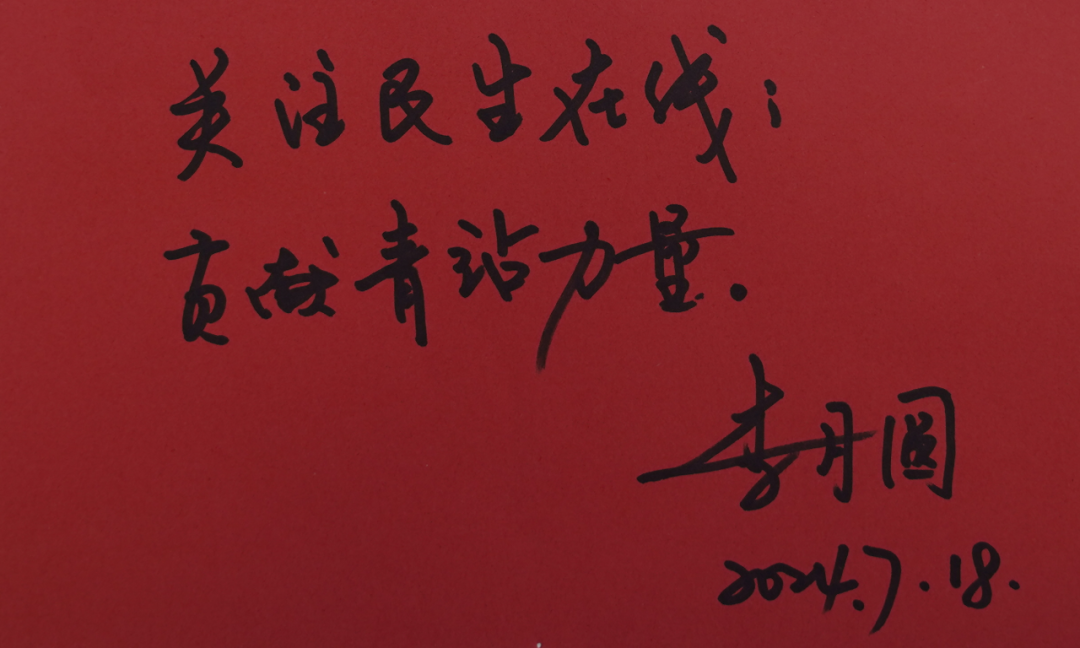 关注民生在线；
贡献青站力量.
李月圆
2024.7.18.